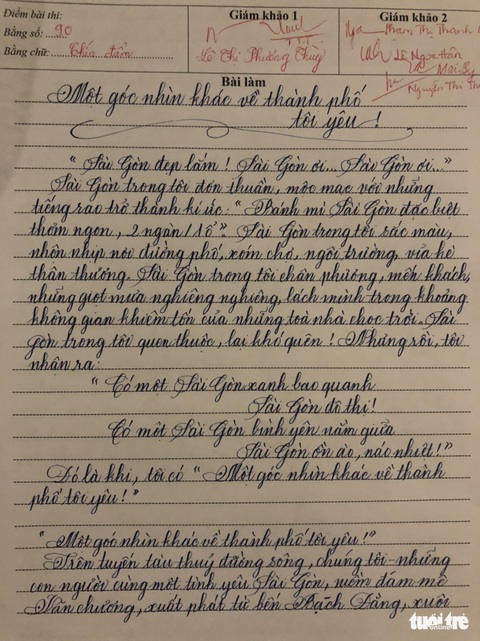 Điểm bài thi:
Bằng số: 90
Bằng chữ: Chín điểm
Giám khảo 1
Lê Thị Phương Thùy
Giám khảo 2
Phạm Thị Thanh
Lê Ngọc Hân
Nguyễn Thị Th
Bài làm
Một góc nhìn khác về thành phố
tôi yêu!
"Sài Gòn đẹp lắm! Sài Gòn ơi... Sài Gòn ơi..."
Sài Gòn trong tôi đơn thuần, mộc mạc với những
tiếng rao trở thành kí ức: "Bánh mì Sài Gòn đặc biệt
thơm ngon, 2 ngàn 1 ổ". Sài Gòn trong tôi sắc màu,
nhộn nhịp nơi đường phố, xóm chợ, ngôi trường, vỉa hè
thân thương. Sài Gòn trong tôi chân phương, mến khách,
những giọt mưa nghiêng nghiêng, lách mình trong khoảng
không gian khiêm tốn của những toà nhà chọc trời. Sài
gòn trong tôi quen thuộc, lại khó quên! Nhưng rồi, tôi
nhận ra:
"Có một Sài Gòn xanh bao quanh
Sài Gòn đô thị!
Có một Sài Gòn bình yên nằm giữa
Sài Gòn ồn ào, náo nhiệt!"
Đó là khi, tôi có "Một góc nhìn khác về thành
phố tôi yêu!"
"Một góc nhìn khác về thành phố tôi yêu!"
Trên tuyến tàu thuỷ đường sông, chúng tôi - những
con người cùng một tình yêu Sài Gòn, niềm đam mê
Văn chương, xuất phát từ bến Bạch Đằng, xuôi
tuổi trẻ
online